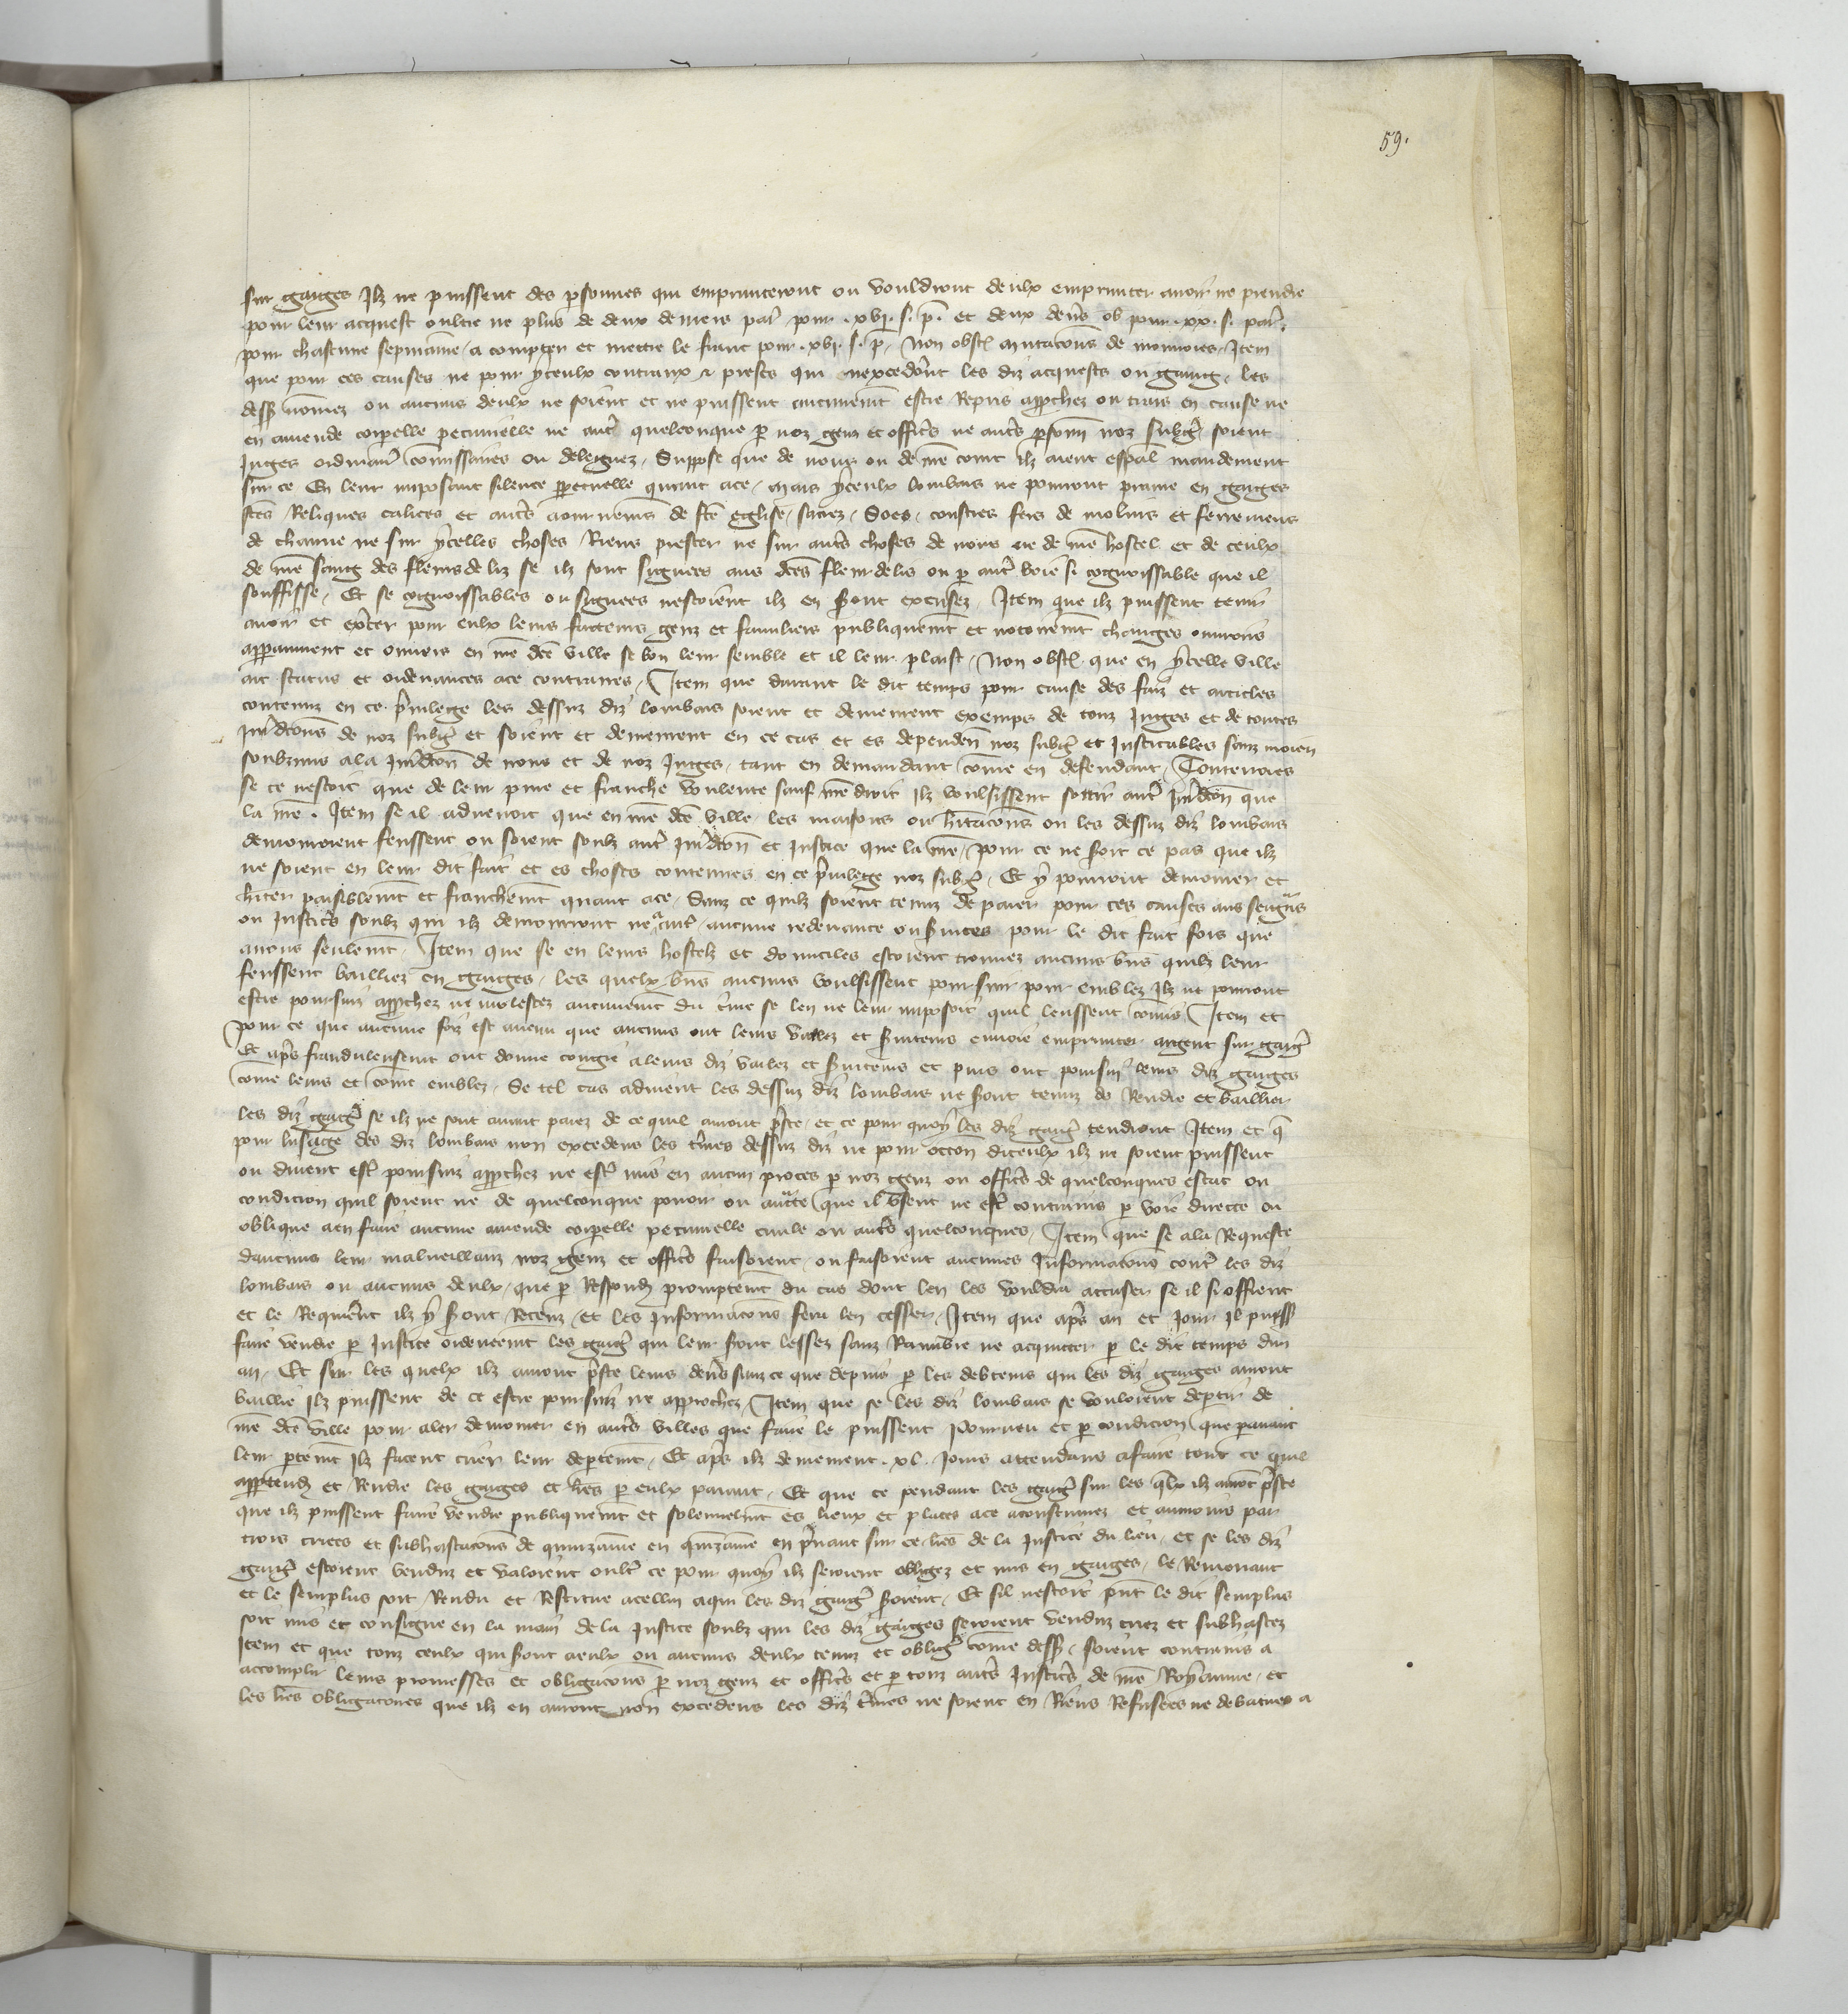 59.
sur gaiges Ilz ne puissent des psonnes qui emprunteront ou vouldront deulx emprunter avoir ne prendre
pour leur acquest oultre ne plus de deux deniers par pour .xvj. s. p. et deux den̄s ob pour .xx. s. par.
pour chascune sepmaine / a compter et mettre le franc pour .xvj. s. p. Non obst mutacōns de monnoies / Item
que pour ces causes ne pour yceulx contraux et prests qui nexcedrōnt les diz acquests ou gaing / les
dess nōmez ou aucuns deulx ne soient et ne puissent aucunemt estre Repris appchez ou traiz en cause ne
en amende corpelle pecunielle ne aut quelconque p noz genz et officrs ne auts psonn noz subgz soient
Juges ordinair cōmissaires ou deleguez / Suppose que de nous ou de nrē court ilz aient espal mandement
sur ce En leur imposant silence ppetuelle quant ace / mais yceulx lombars ne pourront prdre en gaiges
stēs Reliques calices et auts aournemēs de stē eglise / sacrez / Socs / coustres fers de molins et ferremens
de charrue ne sur ycelles choses Riens prester ne sur auts choses de nous ne de nrē hostel et de ceulx
de nrē sang des fleurs de liz se ilz sont signees aus dcēs fleurdelis ou p autr voie si cognoissable que il
souffisse / Et se cognoissables ou signees nestoient ilz en sront excusez / Item que ilz puissent tenir
avoir et exrcer pour eulx leurs facteurs genz et familiers publiquemt et notoiremt changes ouvrouers
apparamment et ouvers en nrē dcē ville se bon leur semble et il leur plaist / Non obst que en ycelle ville
ait status et ordenances ace contraires / Item que durant le dit temps pour cause des faiz et articles
contenuz en ce prvilege les dessuz diz lombars soient et demeurent exemps de touz Juges et de toutes
Jurdcōns de noz subgz et soient et demeurent en ce cas et es dependen noz subgz et Justicables sanz moien
soubzmis ala Jurdcōn de nous et de noz Juges / tant en demandant cōme en defendant / Toutevoies
se ce nestoit que de leur pure et franche voulente sauf nrē droit ilz voulsissent sortir autr Jurdcōn que
la nrē . Item se il advenoit que en nrē dcē ville / les maisons ou hītacōns ou les dessuz diz lombars
demouroient feussent ou soient soubz autr Jurdcōn et Justice que la nrē / pour ce ne soit ce pas que ilz
ne soient en leur dit fait et es choses contenues en ce prvilege noz subgz / Et y pourront demourer et
hīter paisiblemt et franchemt quant ace / Sanz ce quilz soient tenuz de paier pour ces causes aus seigurs
ou Justicrs soubz qui ilz demourront ne a autr aucune redevance ou srvices pour le dit fait fors que
anous seulemt / Item que se en leurs hostelz et domiciles estoient trouvez aucuns bns quilz leur
feussent bailliez en gaiges / les quelx bns aucuns voulsissent poursuir pour emblez Ilz ne pourront
estre poursuiz appchez ne molestez aucunemt du crme se len ne leur imposoit quil leussent cōmis / Item et
pour ce que aucune foiz est avenu que aucuns ont leurs vallez et srviteurs envoié emprunter argent sur gaigz
Et aprs fraudulensemt ont donne congie aleurs diz vallez et srviteurs et puis ont poursuir leurs diz gaiges
cōme leurs et cōme emblez / Se tel cas advient les dessuz diz lombars ne sront tenuz de Rendre et baillier
les diz gaigz se ilz ne sont avant paiez de ce quil auront prste / et ce pour quoy les diz gaigz tendront Item et q̄
pour lusage des diz lombars non excedens les trmes dessuz diz ne pour occon diceulx ilz ne soient puissent
ou doivent estr poursuiz appchez ne estr mis en aucun proces p noz genz ou officrs de quelconques estat ou
condicion quil soient ne de quelconque povoir ou auctte que il usent ne estr contrains p voie directe ou
oblique aen faire aucune amende corpelle pecunielle civile ou auts quelconques / Item que se ala Requeste
daucuns leur malveillanz noz genz et officrs faisoient / ou faisoient aucunes Informatōns contr les diz
lombars ou aucuns deulx / que p Respondr promptemt du cas dont len les vouldra accuser se il si offrent
et le Requierēt ilz y sront Receuz / et les Informacōns fera len cesser / Item que aprs an et Jour Il puiss
faire vendre p Justice ordeneemt les gaigz qui leur sront lessez sanz Raimbre ne acquitter p le dit temps dun
an / Et sur les quelx ilz auront prste leurs denrs sanz ce que depuis p les debteurs qui les diz gaiges auront
baillie ilz puissent de ce estre poursuiz ne approchez / Item que se les diz lombars se vouloient deptir de
nrē dcē ville pour aler demourer en auts villes que faire le puissent Pourveu et p condicion que pavant
leur ptemt Ilz facent crier leur deptemt / Et aprs ilz demeurent .xl. Jours attendans afaire tout ce quil
apptendr et Rendre les gaiges et lrēs p eulx paiant / Et que ce pendant les gaigz sur les qlx ilz auront prste
que ilz puissent faire vendre publiquemt et solennelmt es lieux et places ace acoustumez et aumoins par
trois criees et subhastacōns de quinzaine en quinzaine en prnant sur ce lrēs de la Justice du lieu / et se les diz
gaigz estoient venduz et valoient oultr ce pour quoy ilz seroient obligez et mis en gaiges / le Remonant
et le seurplus soit Rendu et Restitue acellui aqui les diz gaigz sroient / Et sil nestoit prēt le dit seurplus
soit mis et consigne en la main de la Justice soubz qui les diz gaiges seroient venduz criez et subhastez
Item et que touz ceulx qui sront aeulx ou aucuns deulx tenuz et obligz cōme dess / soient contrains a
accomplir leurs promesses et obligacōns p noz genz et officrs et p touz auts Justicrs de nrē Royaume / et
les lrēs obligatoires que ilz en auront non excedens les diz trmes ne soient en Riens Refusees ne debatues a